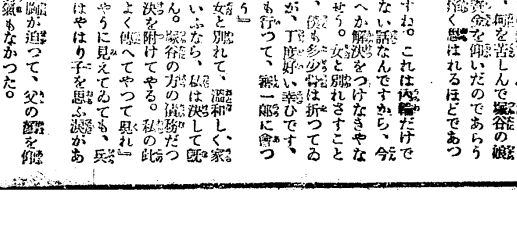 、何を苦しんで塚谷の娘
資金を仰いだのであらう
く思はれるほどであつ
すね。これは内輪だけで
ない話なんですから、今
へか解決をつけなきやな
せう。女と別れさすこと
、僕も多少骨は折つてゐ
が、丁度好い幸ひです、
も行つて、禁一郎に會つ
う』
女と別れて、温和しく、家
いふなら、私は決して既
ん。塚谷の方の債務だつ
決を附けてやる。私の此
よく傳へてやつて呉れ』
やうに見えてゐても、兵
はやはり子を思ふ涙があ
胸が迫つて、父の顏を仰
氣もなかつた。